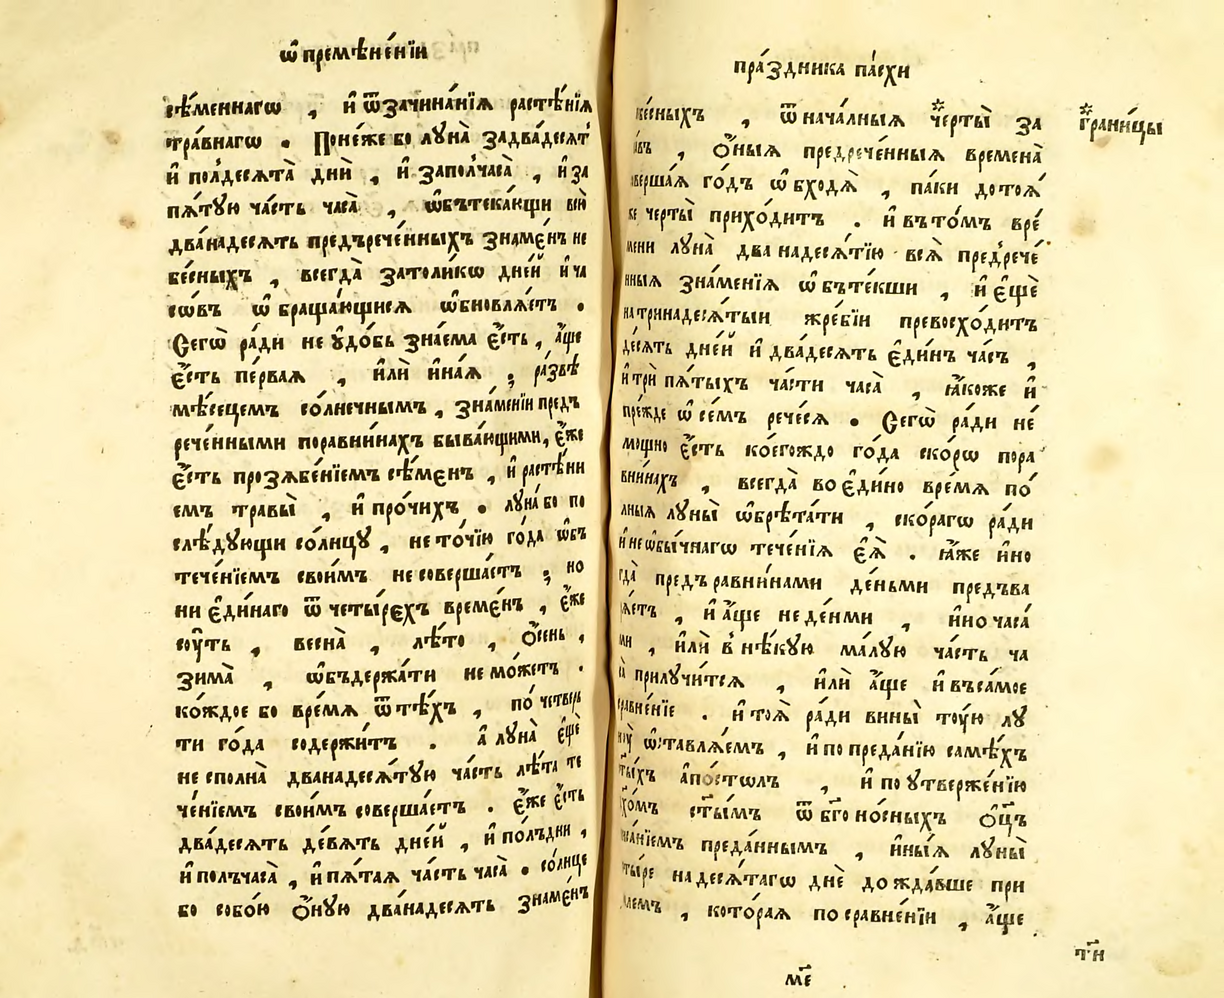 ѡ҆ премѣне́нїи
сѣ́меннагѡ , и҆ ѿзачина́нїѧ расте́нїѧ
тра́внагѡ . Поне́же бо лꙋна̀ задва́десѧт̾
и҆ по́лдесѧта̀ днѝ , и҆ заполчаса̀ , и҆ за
пѧ́тꙋю ча́сть часа̀ , ѡ҆бътека́ющи всѝ
двана́десѧть предърече́нныхъ зна́менъ не
бе́сныхъ , всегда̀ затоли́кѡ дне́й и҆ ча
со́въ ѡ҆браща́ющисѧ ѡ҆бновлѧ́етъ .
Сегѡ̀ ра́ди не ᲂу҆до́бь зна́ема є҆́сть , а҆́ще
є҆́сть пе́рваѧ , и҆лѝ и҆на́ѧ ; ра́звѣ
мѣ́сецемъ со́лнечнымъ , зна́менїи предъ
рече́нными поравни́нахъ быва́ющими, є҆́же
є҆́сть прозѧбе́нїемъ сѣ́менъ , и҆ расте́ни
емъ травы̀ , и҆ про́чихъ . лꙋна́ бо по
слѣ́дꙋющи со́лнцꙋ , не то́чїю го́да ѡ҆бъ
тече́нїемъ свои́мъ не соверша́етъ ; но
ни є҆ди́наго ѿ четы́рехъ време́нъ , є҆́же
сꙋ́ть , весна̀ , лѣ́то , ѻ҆́сень ,
зима̀ , ѡ҆бъдержа́ти не мо́жетъ .
ко́ждое бо вре́мѧ ѿ тѣ́хъ , по четвер
ти го́да содержи́тъ . а҆ лꙋна̀ є҆щѐ
не сполна̀ дванадесѧ́тꙋю ча́сть лѣ́та те
че́нїемъ свои́мъ соверша́етъ . є҆́же є҆́сть
два́десѧть де́вѧть дне́й , и҆ по́лъдни ,
и҆ полъчаса̀ , и҆ пѧ́таѧ ча́сть часа̀ . со́лнце
бо собо́ю ѻ҆́нꙋю двана́десѧть зна́менъ
пра́здника па́схи
бе́сныхъ , ѿ нача́лныѧ * черты̀ за
, ѻ҆́ныѧ предрече́нныѧ времена̀
верша́ѧ го́дъ ѡ҆бходѧ̀ , па́ки до тоѧ̀
же черты̀ прихо́дитъ . и҆ въ то́мъ вре́
мени лꙋна̀ два надесѧ́тїю всѧ̀ предрече́
нныѧ зна́менїѧ ѡ҆бъте́кши , и҆ є҆щѐ
на тринадесѧ́тыи жре́бїи превосхо́дитъ
де́сѧть дне́й и҆ два́десѧть є҆ди́нъ ча́съ ,
и҆ трѝ пѧ́тыхъ ча́сти часа̀ , ꙗ҆́коже и҆
пре́жде ѡ҆ се́мъ рече́сѧ . Сегѡ̀ ра́ди не
мо́щно є҆́сть кое́гождо го́да ско́рѡ пора
вни́нахъ , всегда̀ во є҆ди́но вре́мѧ по́
лныѧ лꙋны̀ ѡ҆брѣта́ти , ско́рагѡ ра́ди
и҆ не ѡ҆бы́чнагѡ тече́нїѧ є҆ѧ̀ . ꙗ҆́же и҆но
гда̀ предъ равни́нами де́ньми предъва
рѧ́етъ , и҆ а҆́ще не де́нми , и҆но часа́
ми , и҆лѝ в нѣ́кꙋю ма́лꙋю ча́сть ча
са̀ прилꙋчи́тсѧ , и҆лѝ а҆́ще и҆ въ са́мое
сравне́нїе . и҆ тоѧ̀ ра́ди вины̀ тꙋ́ю лꙋ
нꙋ̀ ѡ҆ставлѧ́емъ , и҆ по преда́нїю самѣ́хъ
ст҃ы́хъ а҆по́столъ , и҆ по ᲂу҆твержде́нїю
дх҃омъ ст҃ы́мъ ѿ бг҃оно́сныхъ ѻ҆ц҃ъ
писа́нїемъ преда́ннымъ , и҆ны́ѧ лꙋны̀
четы́ре надесѧ́тагѡ днѐ дожда́вше прї
е́млемъ , кото́раѧ по сравне́нїи , а҆́ще
* грани́цы
м҃е
т҃н